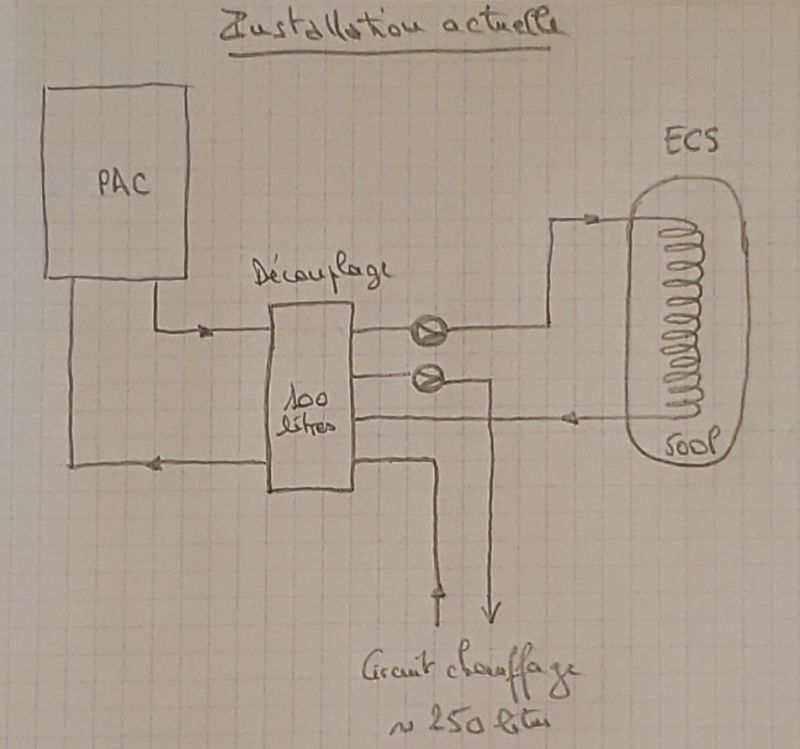 Installation actuelle
PAC
ECS
Découplage
100
litres
500l
Circuit chauffage
~ 250 litres